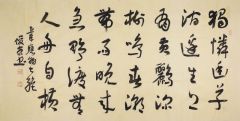 獨憐幽草
澗邊生上
有黃鸝深
樹鳴春潮
帶雨晚來
急野渡無
人舟自橫
韋應物